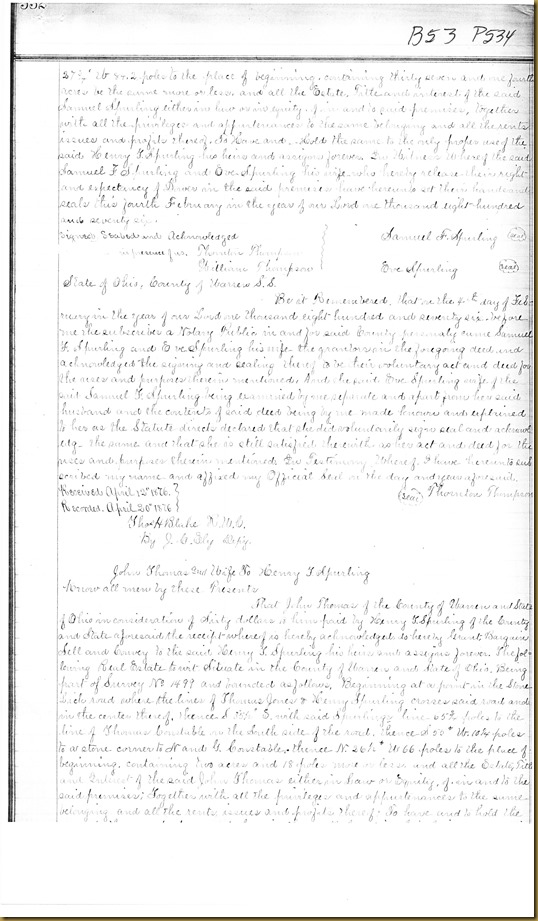 332
B53 P534
27½° W 22.2 poles to the place of beginning, containing thirty seven and one fourth
acres be the same more or less, and all the Estate, Title and interest of the said
Samuel Spurling either in law or in equity, of, in and to said premises, Together
with all the privileges and appurtenances to the same belonging and all the rents
issues and profits thereof, To Have and Hold the same to the only proper use of the
said Henry F. Spurling his heirs and assigns forever. In Witness Whereof the said
Samuel F. Spurling and Eve Spurling his wife, who hereby release their right
and expectancy of Dower in the said premises have hereunto set their hands and
seals this fourth February in the year of our Lord one thousand eight hundred
and seventy six.
Signed Sealed and Acknowledged } Samuel F. Spurling (seal)
in presence of us. Thornton Thompson
William Thompson } Eve Spurling (seal)
State of Ohio, County of Warren S.S.
Be it Remembered, that on the 4th day of Feb-
ruary in the year of our Lord one thousand eight hundred and seventy six, before
me the subscriber a Notary Public in and for said County personally came Samuel
F. Spurling and Eve Spurling his wife the grantors in the foregoing deed and
acknowledged the signing and sealing thereof to be their voluntary act and deed for
the uses and purposes therein mentioned. And the said Eve Spurling wife of the
said Samuel F. Spurling being examined by me separate and apart from her said
husband and the contents of said deed being by me made known and explained
to her as the Statute directs declared that she did voluntarily sign seal and acknowl
edge the same and that she is still satisfied therewith as her act and deed for the
uses and purposes therein mentioned. In Testimony Whereof, I have hereunto sub
scribed my name and affixed my Official Seal on the day and year aforesaid.
Received April 12th 1876. } (seal) Thornton Thompson
Recorded April 20th 1876 }
Thos H Blake R.W.C.
By J. C. Ely Depy.
John Thomas and Wife To Henry F Spurling
Know all men by these Presents
That John Thomas of the County of Warren and State
of Ohio in consideration of Sixty dollars to him paid by Henry F. Spurling of the County
and State aforesaid the receipt whereof is hereby acknowledged do hereby Grant, Bargain
Sell and Convey to the said Henry F. Spurling his heirs and assigns forever. The fol-
lowing Real Estate to wit Situate in the County of Warren and State of Ohio. Being
part of Survey No 1499 and bounded as follows, Beginning at a point in the Stone
Lick road where the lines of Thomas Jones & Henry Spurling crosses said road and
in the center thereof, thence S. E. with said Spurlings line 55 poles to the
line of Thomas Constable on the South side of the road, thence S 50° W. 10¼ poles
to a stone corner to N and G. Constable. thence N. 26½° W 66 poles to the place of
beginning, containing two acres and 18 poles more or less and all the Estate, Title
and Interest of the said John Thomas either in Law or Equity, of, in and to the
said premises; Together with all the privileges and appurtenances to the same
belonging and all the rents issues and profits thereof; To have and to hold the